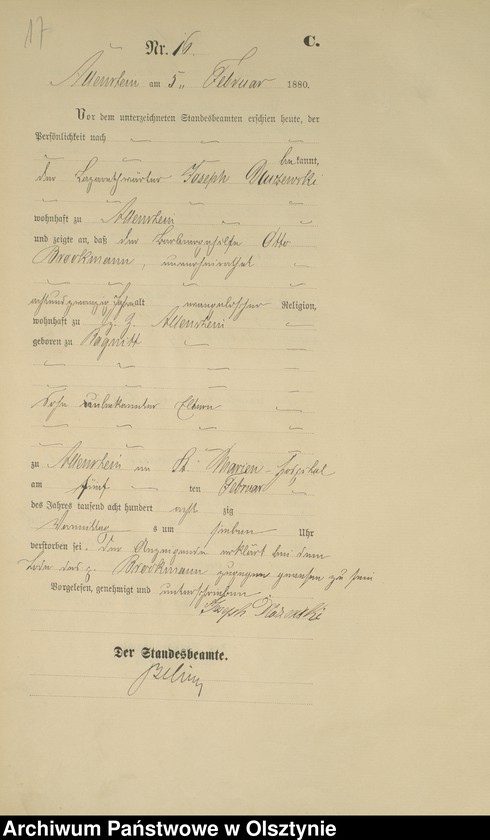 17
Nr. 16
C.
Allenstein am 5ten Februar 1880.
Vor dem unterzeichneten Standesbeamten erschien heute, der
Persönlichkeit nach
bekannt,
der Lazarethwärter Joseph
wohnhaft zu Allenstein
und zeigte an, daß der Barbiergehilfe Otto
Brockmann, unverheirathet
achtundzwanzig Jahre alt evangelischer Religion,
wohnhaft zu z. Z. Allenstein
geboren zu Ragnitt
Sohn unbekannter Eltern
zu Allenstein im St. Marien-Hospital
am fünf ten Februar
des Jahres tausend acht hundert acht zig
Vormittags um sieben Uhr
verstorben sei. Der Anzeigende erklärt bei dem
Tode des p. Brockmann zugegen gewesen zu sein
Vorgelesen, genehmigt und unterschrieben
Joseph
Der Standesbeamte.
Archiwum Państwowe w Olsztynie